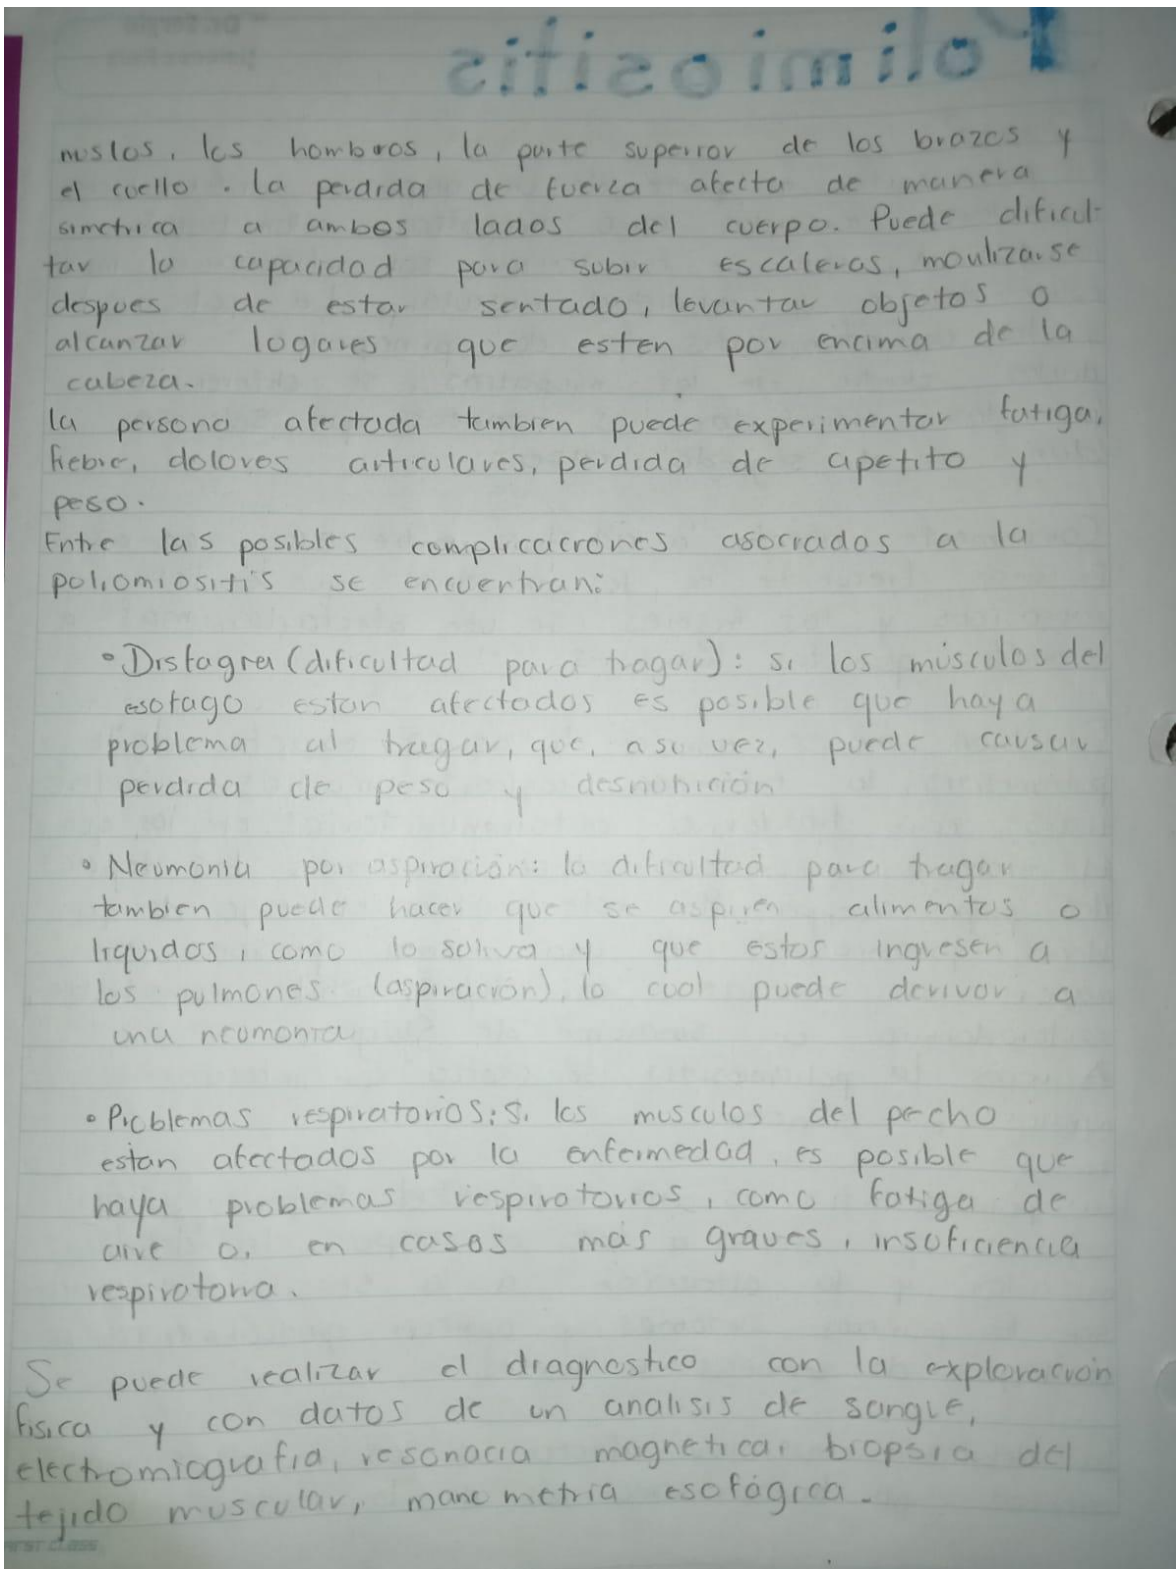 Polimiositis
muslos, los hombros, la parte superior de los brazos y
el cuello. la perdida de fuerza afecta de manera
simetrica a ambos lados del cuerpo. Puede dificul-
tar la capacidad para subir escaleras, moulizarse
despues de estar sentado, levantar objetos o
alcanzar logares que esten por encima de la
cabeza.
la persona afectada tambien puede experimentar fatiga,
fiebre, dolores articulares, perdida de apetito y
peso.
Entre las posibles complicaciones asociados a la
poliomiositis se encuentran:
• Disfagia (dificultad para tragar): si los músculos del
esofago estan afectados es posible que haya
problema al tragar, que, a su vez, puede causar
perdida de peso y desnutrición
• Neumonia por aspiración: la dificultad para tragar
tambien puede hacer que se aspiren alimentos o
liquidos, como la saliva y que estos ingresen a
los pulmones (aspiración), lo cual puede derivar a
una neumonia
• Problemas respiratorios: si los musculos del pecho
estan afectados por la enfermedad, es posible que
haya problemas respiratorios, como fatiga de
aire o, en casos más graves, insuficiencia
respiratoria.
Se puede realizar el diagnostico con la exploración
fisica y con datos de un analisis de sangre,
electromiografia, resonacia magnetica, biopsia del
tejido muscular, manometria esofágica.
FIRST CLASS